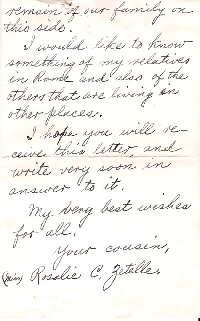 remain of our family on
this side.
I would like to know
something of my relatives
in Rome and also of the
others that are living in
other places.
I hope you will re-
ceive this letter, and
write very soon in
answer to it.
My very best wishes
for all.
Your cousin,
(Miss) Rosalie C. Zetelle.